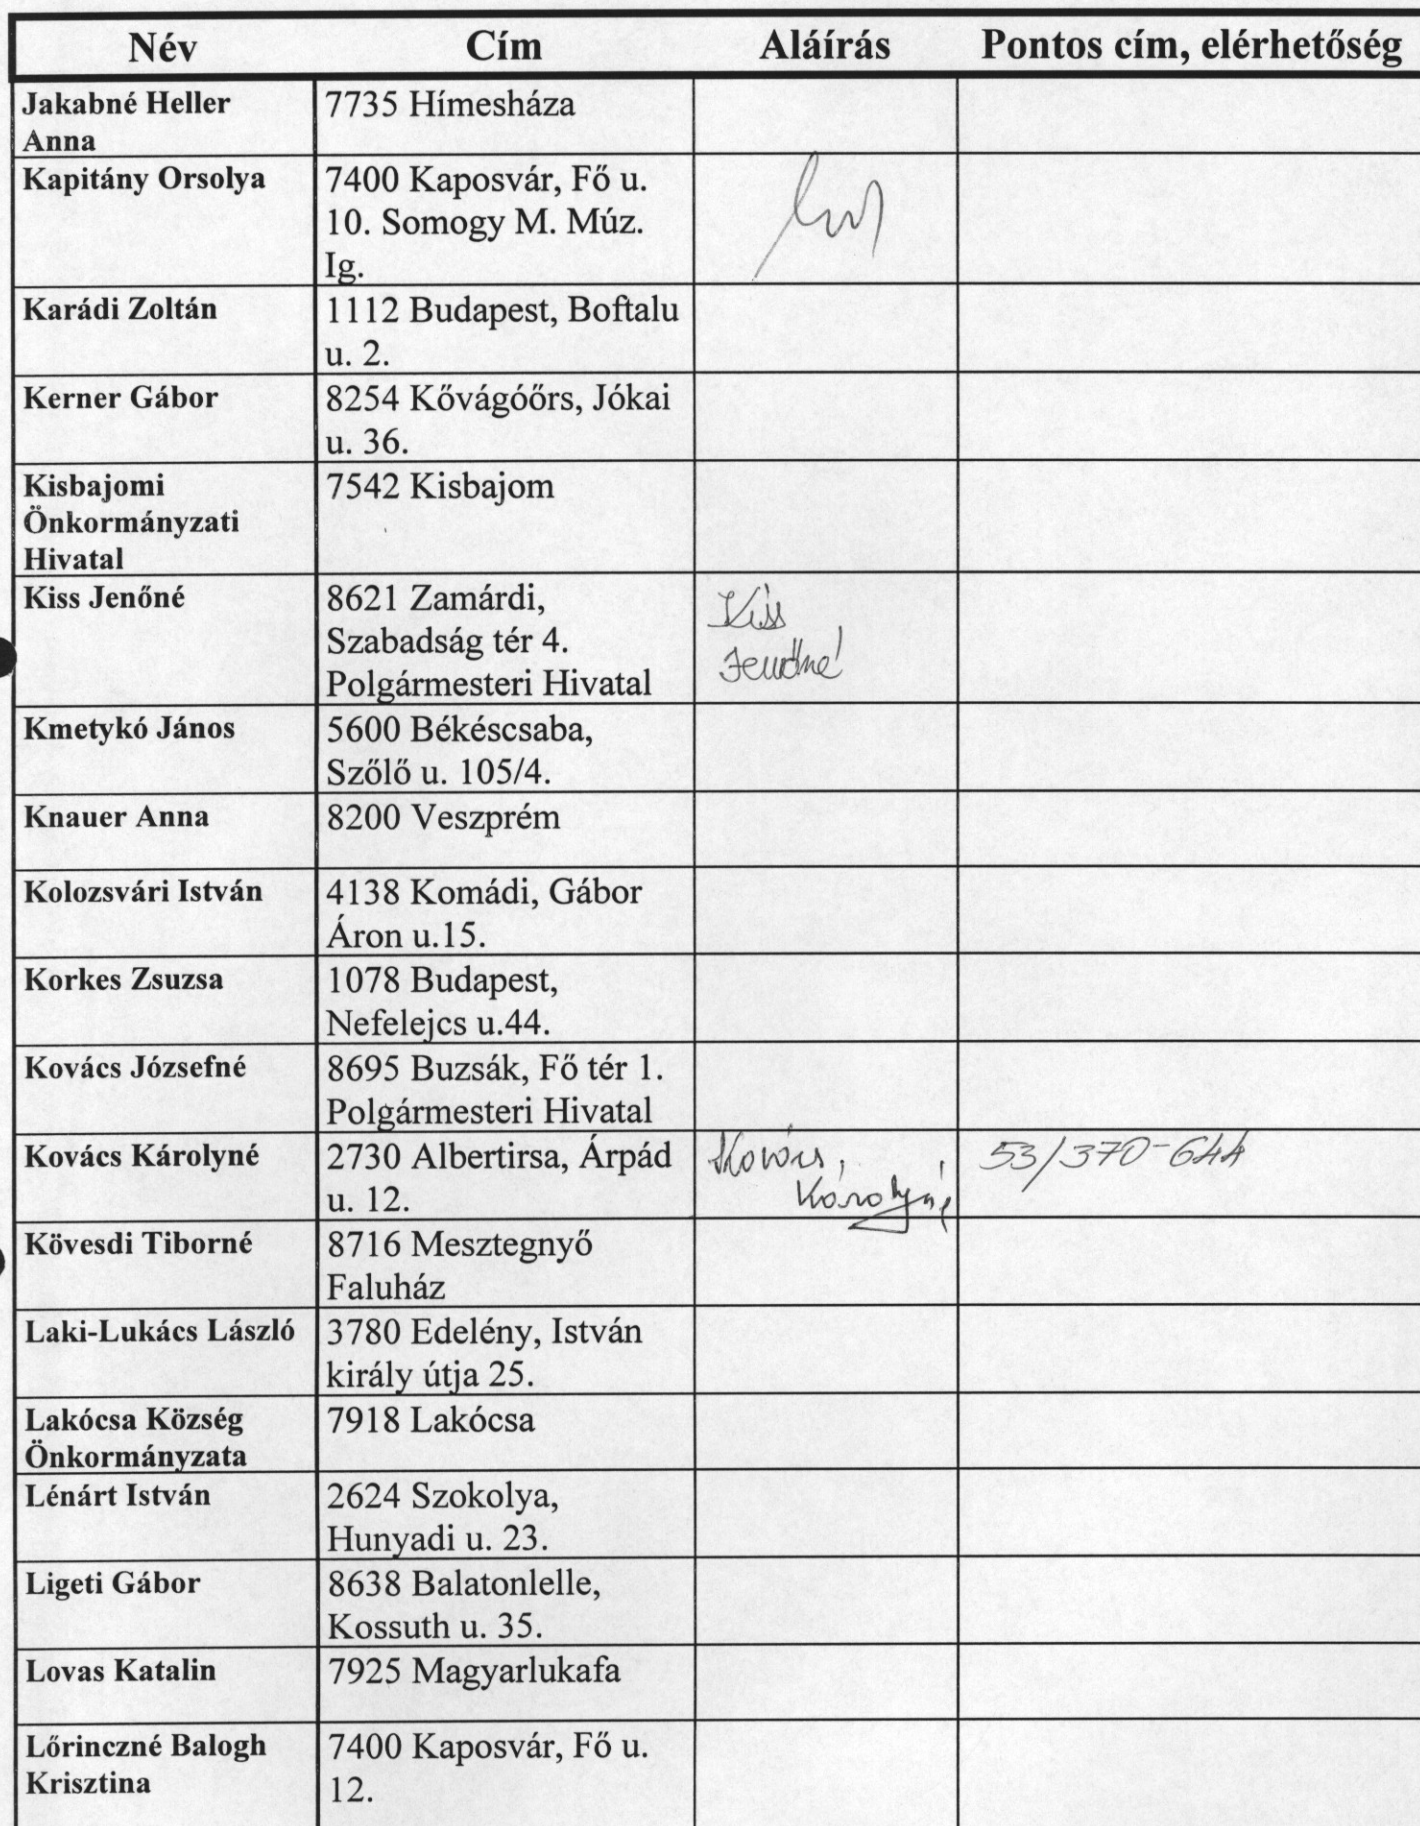 Név Cím Aláírás Pontos cím, elérhetőség
Jakabné Heller 7735 Hímesháza
Anna
Kapitány Orsolya 7400 Kaposvár, Fő u.
10. Somogy M. Múz.
Ig.
Karádi Zoltán 1112 Budapest, Boftalu
u. 2.
Kerner Gábor 8254 Kővágóőrs, Jókai
u. 36.
Kisbajomi 7542 Kisbajom
Önkormányzati
Hivatal
Kiss Jenőné 8621 Zamárdi, Kiss
Szabadság tér 4. Jenőné
Polgármesteri Hivatal
Kmetykó János 5600 Békéscsaba,
Szőlő u. 105/4.
Knauer Anna 8200 Veszprém
Kolozsvári István 4138 Komádi, Gábor
Áron u.15.
Korkes Zsuzsa 1078 Budapest,
Nefelejcs u.44.
Kovács Józsefné 8695 Buzsák, Fő tér 1.
Polgármesteri Hivatal
Kovács Károlyné 2730 Albertirsa, Árpád Kovács 53/370-644
u. 12. Károlyné
Kövesdi Tiborné 8716 Mesztegnyő
Faluház
Laki-Lukács László 3780 Edelény, István
király útja 25.
Lakócsa Község 7918 Lakócsa
Önkormányzata
Lénárt István 2624 Szokolya,
Hunyadi u. 23.
Ligeti Gábor 8638 Balatonlelle,
Kossuth u. 35.
Lovas Katalin 7925 Magyarlukafa
Lőrinczné Balogh 7400 Kaposvár, Fő u.
Krisztina 12.